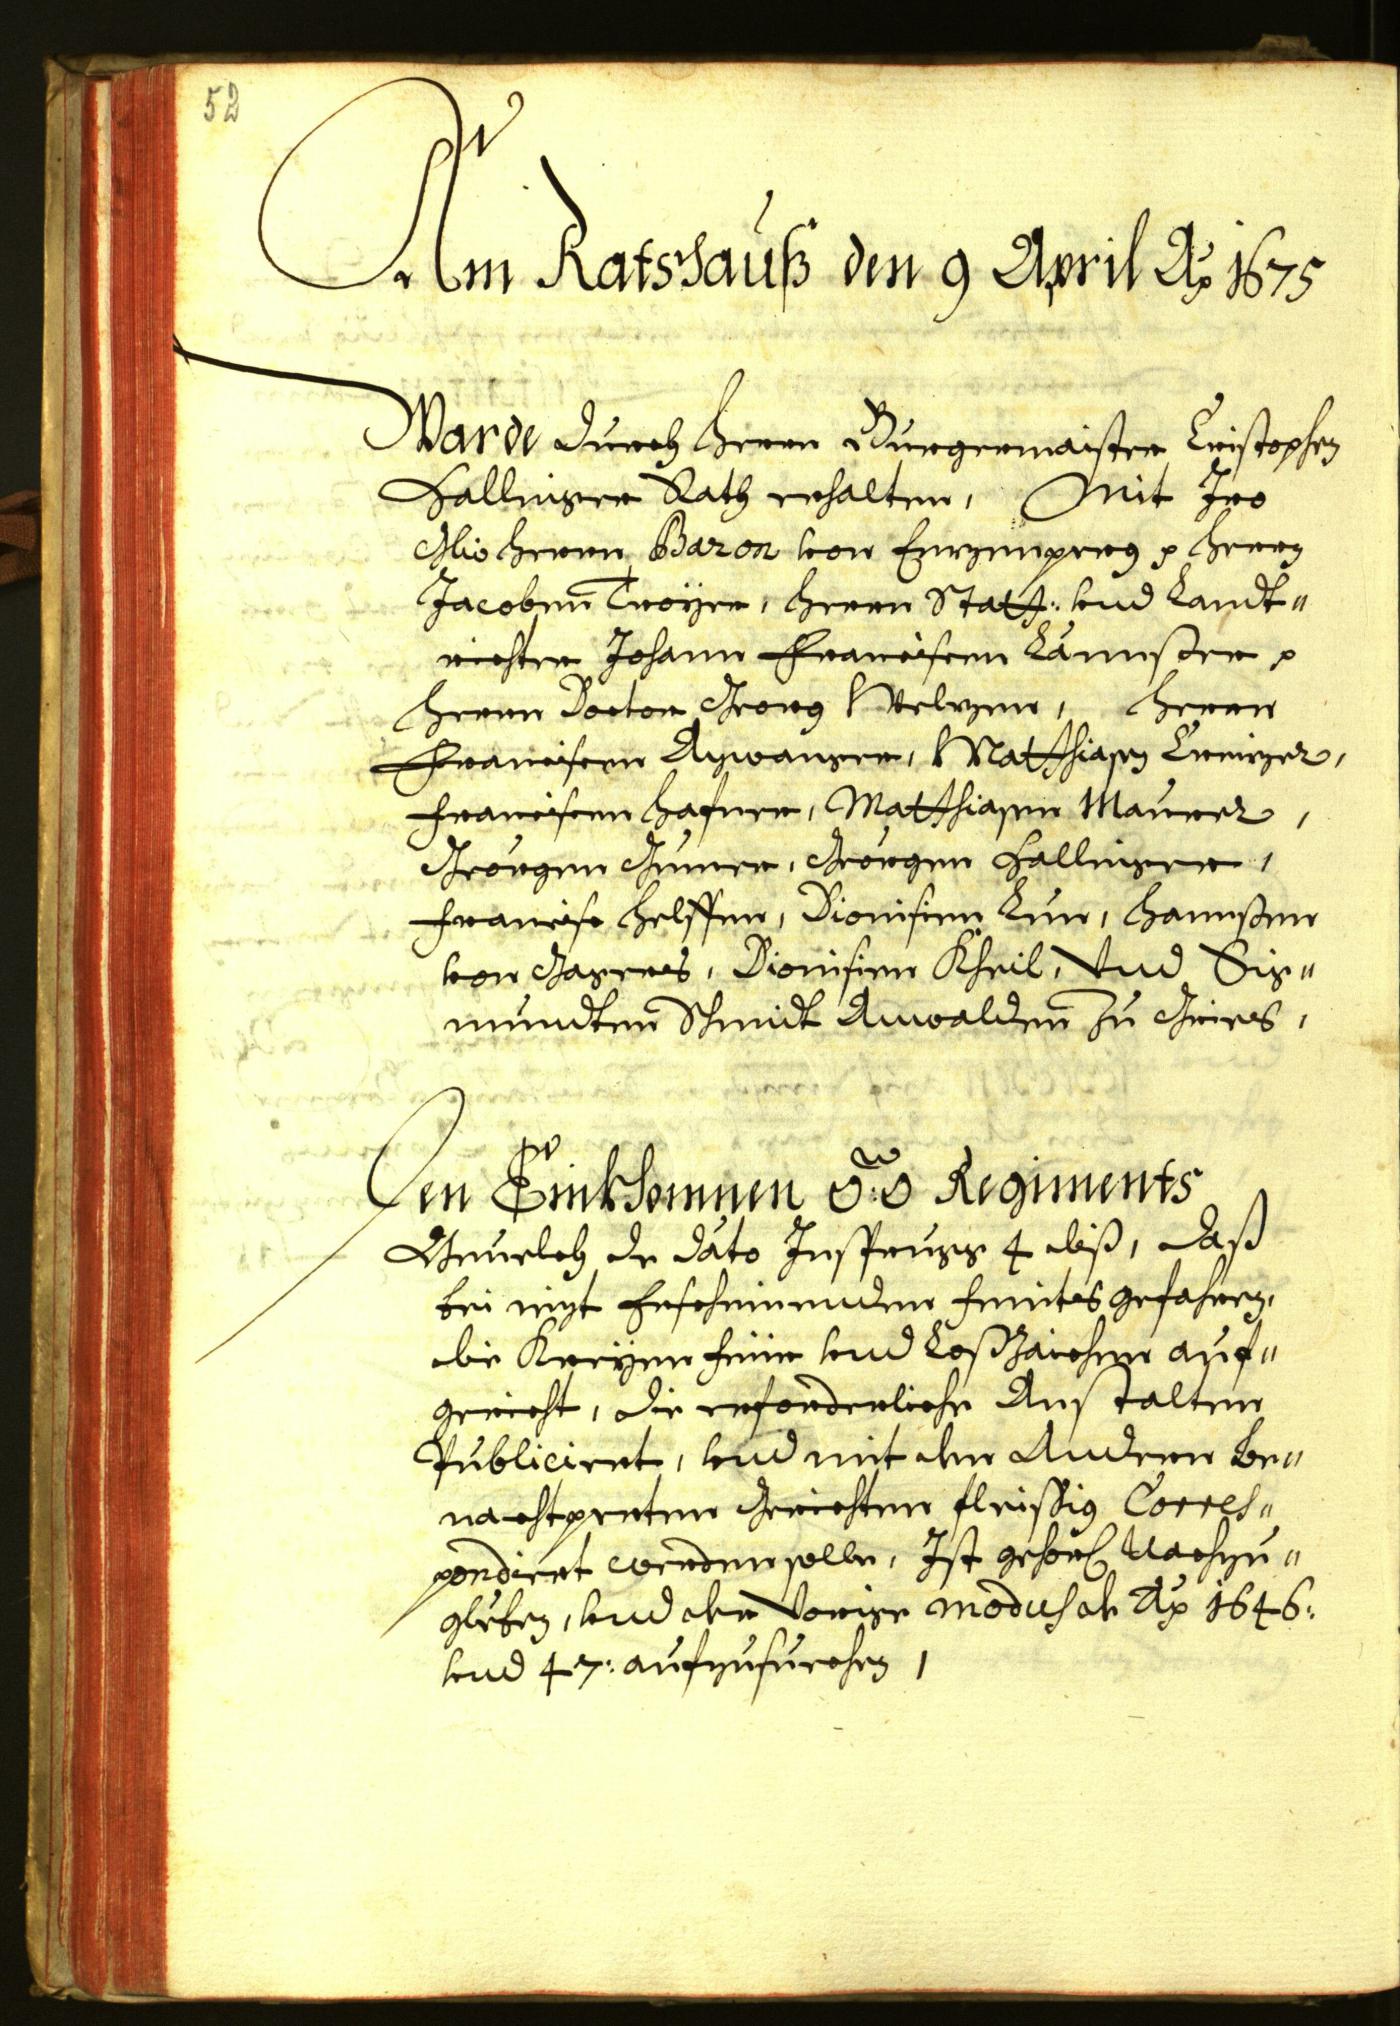 52
Am Ratshauß den 9 April Ao 1675
Warde durch herrn Burgermaister Cristophen
Hallinger Rath erhalten, Mit Iro
Glio herrn Baron von herrn
Jacoben Troÿer, herrn Statt: und Landt„
richter Johann Francisen
herrn Doctor Georg Welzen, herrn
Francisen Aÿwanger, Matthiasen
Francisen Hafner, Matthiasen Maurer,
Geörgen Gumer, Geörgen Hallinger,
Francisc helffen, Dionisien Lun, hannßen
von Gagers, Dionisien Kheil, Vnd Sig„
mundten Schmidt Anwalden zu Gries,
Den Einkhomnen O: Ö Regiments
Beuelch de dato Insprugg 4 diß, daß
bei iezt Erscheinenden feints gefahren,
die Kreÿen feür und Loßzaichen auf„
gericht, die erforderliche Anstalten
Publiciert, und mit den Andern be„
nachtperten Gerichten fleissig Corres„
pondiert werden solle, Ist gehors. Nachzu„
gleben, und der Vorige modus de Ao 1646:
und 47: aufzusuechen,